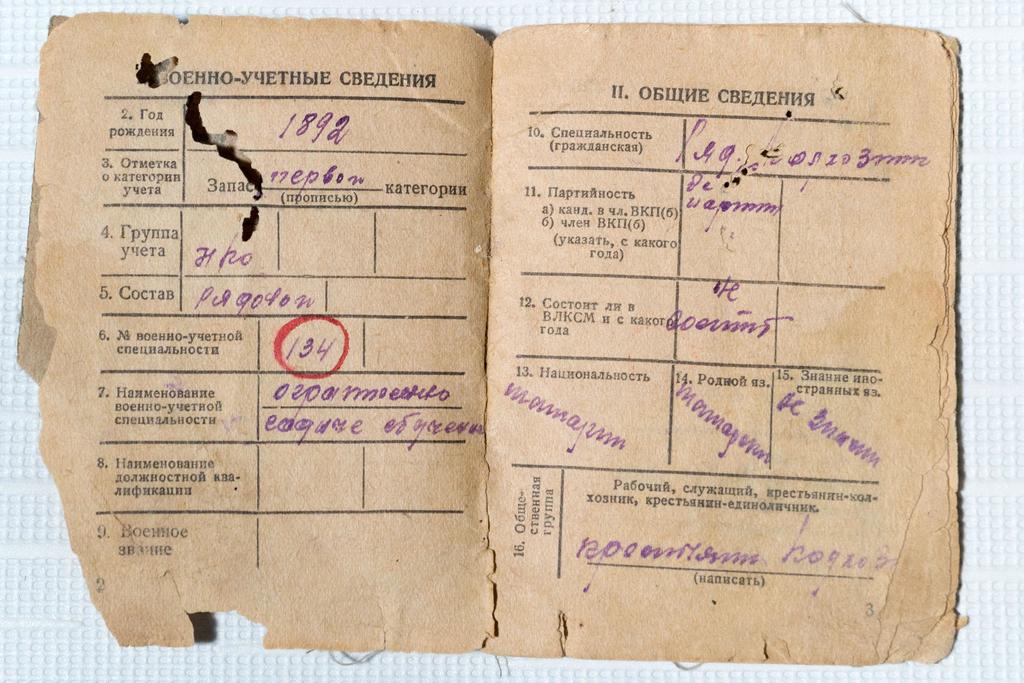 ВОЕННО-УЧЕТНЫЕ СВЕДЕНИЯ
2. Год рождения
1892
3. Отметка о категории учета
Запас первой категории
(прописью)
4. Группа учета
НКО
5. Состав
Рядовой
6. № военно-учетной специальности
134
7. Наименование военно-учетной специальности
8. Наименование должностной квалификации
9. Военное звание
2
II. ОБЩИЕ СВЕДЕНИЯ
10. Специальность (гражданская)
Ряд.
11. Партийность
а) канд. в чл. ВКП(б)
б) член ВКП(б)
(указать, с какого года)
12. Состоит ли в ВЛКСМ и с какого года
не
состоит
13. Национальность
татарин
14. Родной яз.
15. Знание иностранных яз.
не
16. Общественная группа
Рабочий, служащий, крестьянин-колхозник, крестьянин-единоличник.
(написать)
3